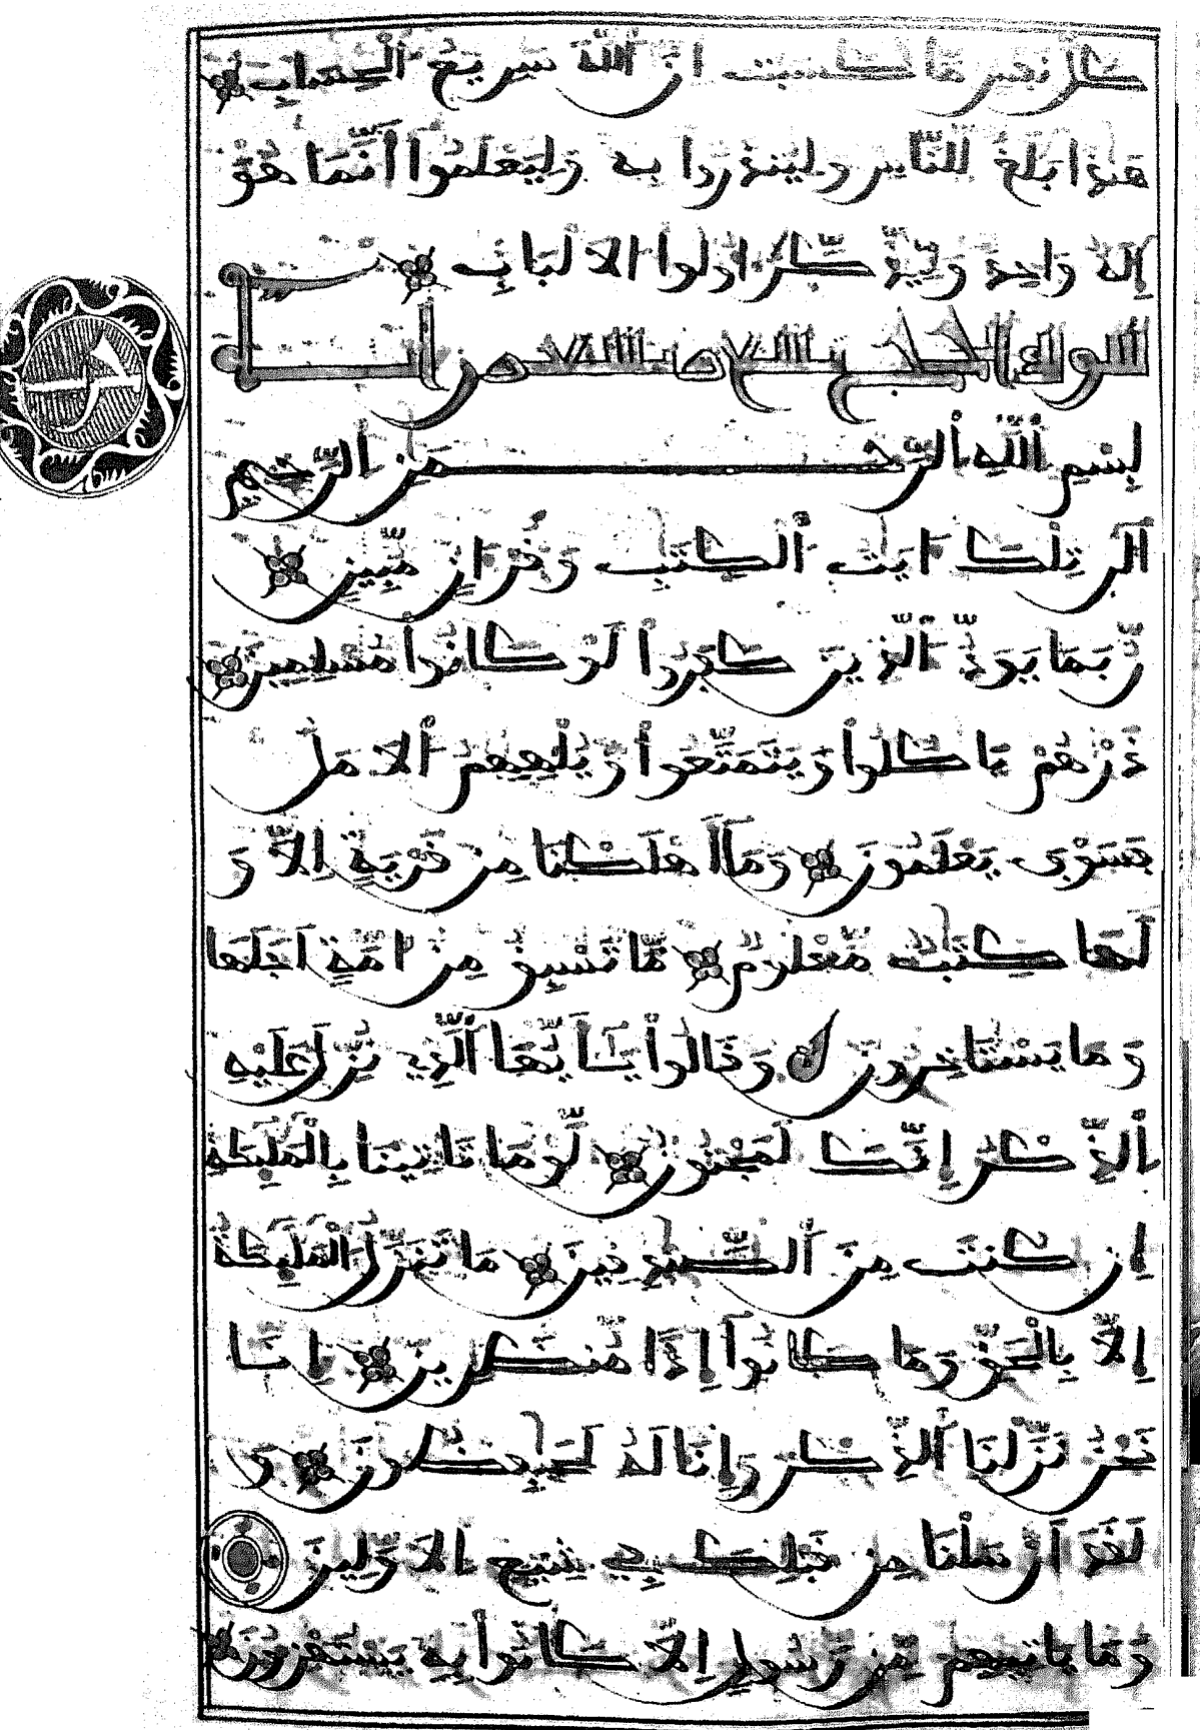 كل نفس ما كسبت ان الله سريع الحساب
هذا بلغ للناس ولينذروا به وليعلموا أنما هو
إله واحد وليذكر اولوا الالباب
سورة الحجر تسع وتسعون آية
بسم ألله ألرحمن ألرحيم
ألر تلك ايت ألكتب وقران مبين
ربما يود ألذين كفروا لو كانوا مسلمين
ذرهم ياكلوا ويتمتعوا ويلههم ألامل
فسوف يعلمون وما أهلكنا من قرية الا و
لها كتب معلوم ما تسبق من امة اجلها
وما يستاخرون وقالوا يأيها ألذي نزل عليه
ألذكر إنك لمجنون لو ما تاتينا بالمليكة
ان كنت من ألصدقين ما تنزل ألمليكة
إلا بالحق وما كانوا إذا منظرين إنا
نحن نزلنا ألذكر وإنا له لحفظون و
لقد ارسلنا من قبلك في شيع الاولين
وما ياتيهم من رسول إلا كانوا به يستهزءون